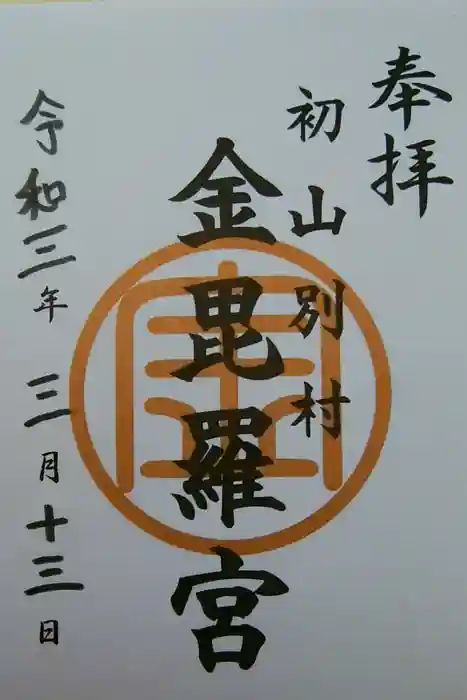 奉拝
初山別村
金毘羅宮
令和三年三月十三日